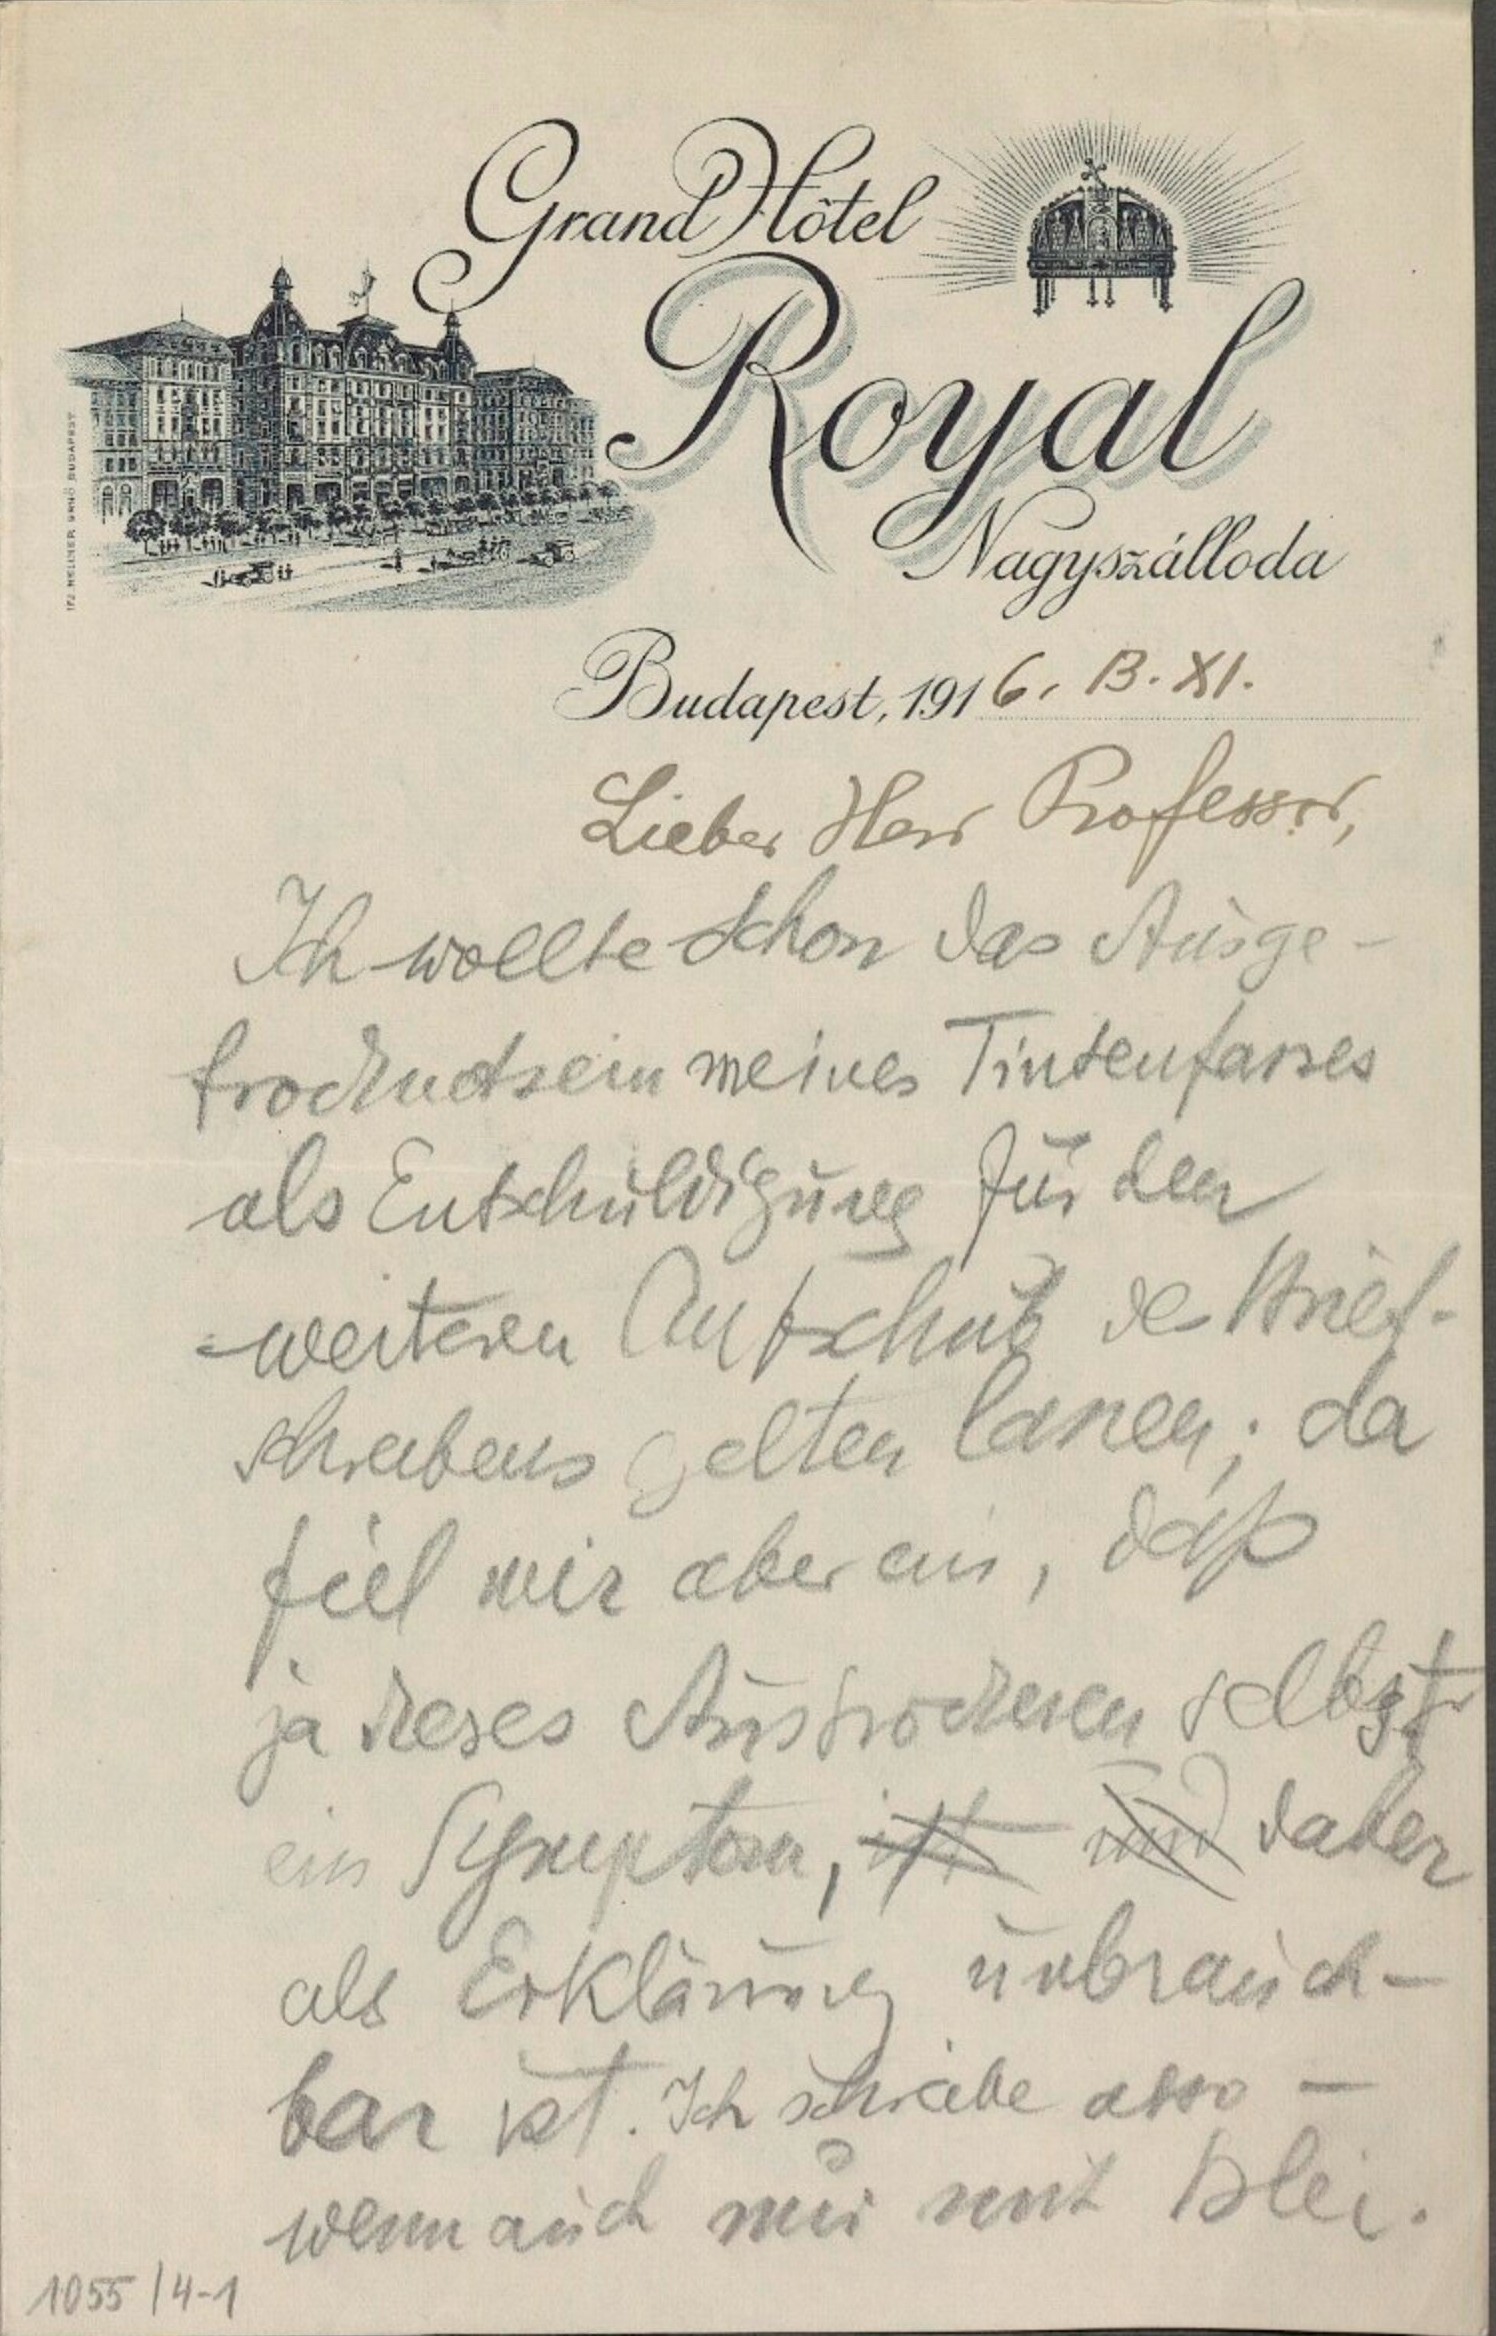 Grand Hôtel
Royal
Nagyszálloda
IFJ. KELLNER ERNŐ BUDAPEST
Budapest, 1916. 13. XI.
Lieber Herr Professor,
Ich wollte schon das Ausge-
trocknetsein meines Tintenfasses
als Entschuldigung für den
weiteren Aufschub des Brief-
schreibens gelten lassen; da
fiel mir aber ein, daß
ja dieses Austrocknen selbst
ein Symptom, ist und daher
als Erklärung unbrauch-
bar ist. Ich schreibe also –
wenn auch nur mit Blei.
1055/4-1